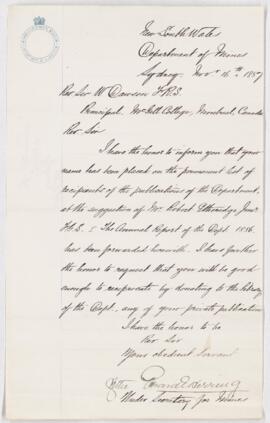 New South Wales
Department of Mines
Sydney Nov 16th 1887
Rev Sir W Dawson F.R.S.
Principal McGill College, Montreal, Canada
Rev Sir
I have the honor to inform you that your
name has been placed on the permanent list of
recipients of the publications of the Department,
at the suggestion of Mr. Robert Etheridge Junr
The Annual Report of the Dept. 1886
has been forwarded herewith. I have further
the honor to request that you will be good
enough to reciprocate by donating to the library
of the Dept, any of your private publications
I have the honor to be
Rev Sir
Your obedient Servant
Under Secretary for Mines